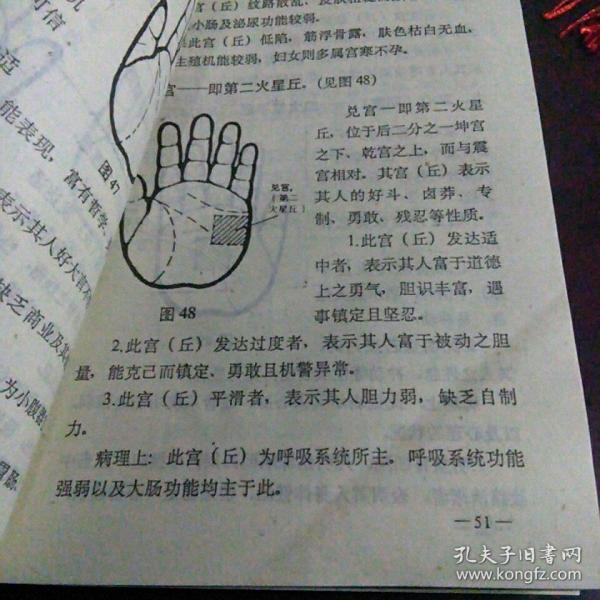 宫（丘）纹路散乱，
小肠及泌尿功能较弱。
此宫（丘）低陷，筋浮骨露，肤色枯白无血，
主殖机能较弱，妇女则多属宫寒不孕。
宫——即第二火星丘。（见图48）
兑宫—即第二火星
丘，位于后二分之一坤宫
之下、乾宫之上，而与震
宫相对。其宫（丘）表示
其人的好斗、卤莽、专
制、勇敢、残忍等性质。
1.此宫（丘）发达适
中者，表示其人富于道德
上之勇气，胆识丰富，遇
事镇定且坚忍。
兑宫，
（第二
火星丘）
图48
2.此宫（丘）发达过度者，表示其人富于被动之胆
量，能克己而镇定、勇敢且机警异常。
3.此宫（丘）平滑者，表示其人胆力弱，缺乏自制
力。
病理上：此宫（丘）为呼吸系统所主。呼吸系统功能
强弱以及大肠功能均主于此。
—51—
图47
可信
适
能表现，
富有哲学、
表示其人好大言
缺乏商业及
为小腹
孔夫子旧书网
www.kongfz.com